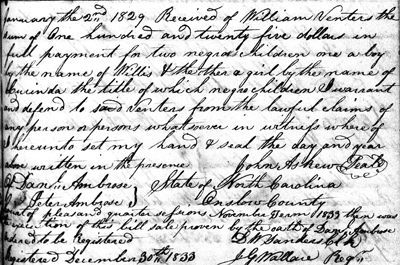 January the 2nd 1829 Received of William Venters the
sum of One hundred and twenty five dollars in
full payment for two negro children one a boy
by the name of Willis & the other a girl by the name of
Lucinda the title of which negro children I warrant
and defend to said Venters from the lawful claims of
any person or persons whatsoever in witness where of
I hereunto set my hand & seal the day and year
above written in the presence John Askew Seal
Of Danl. Ambrose State of North Carolina
Peter Ambrose Onslow County
Court of pleas and quarter sessions November Term 1833 then was
execution of this bill sale proven by the oath of Danl Ambrose
Ordered to be Registered D. W. Sanders Clk
Registered December 30th 1833 J G Wallace Regr.